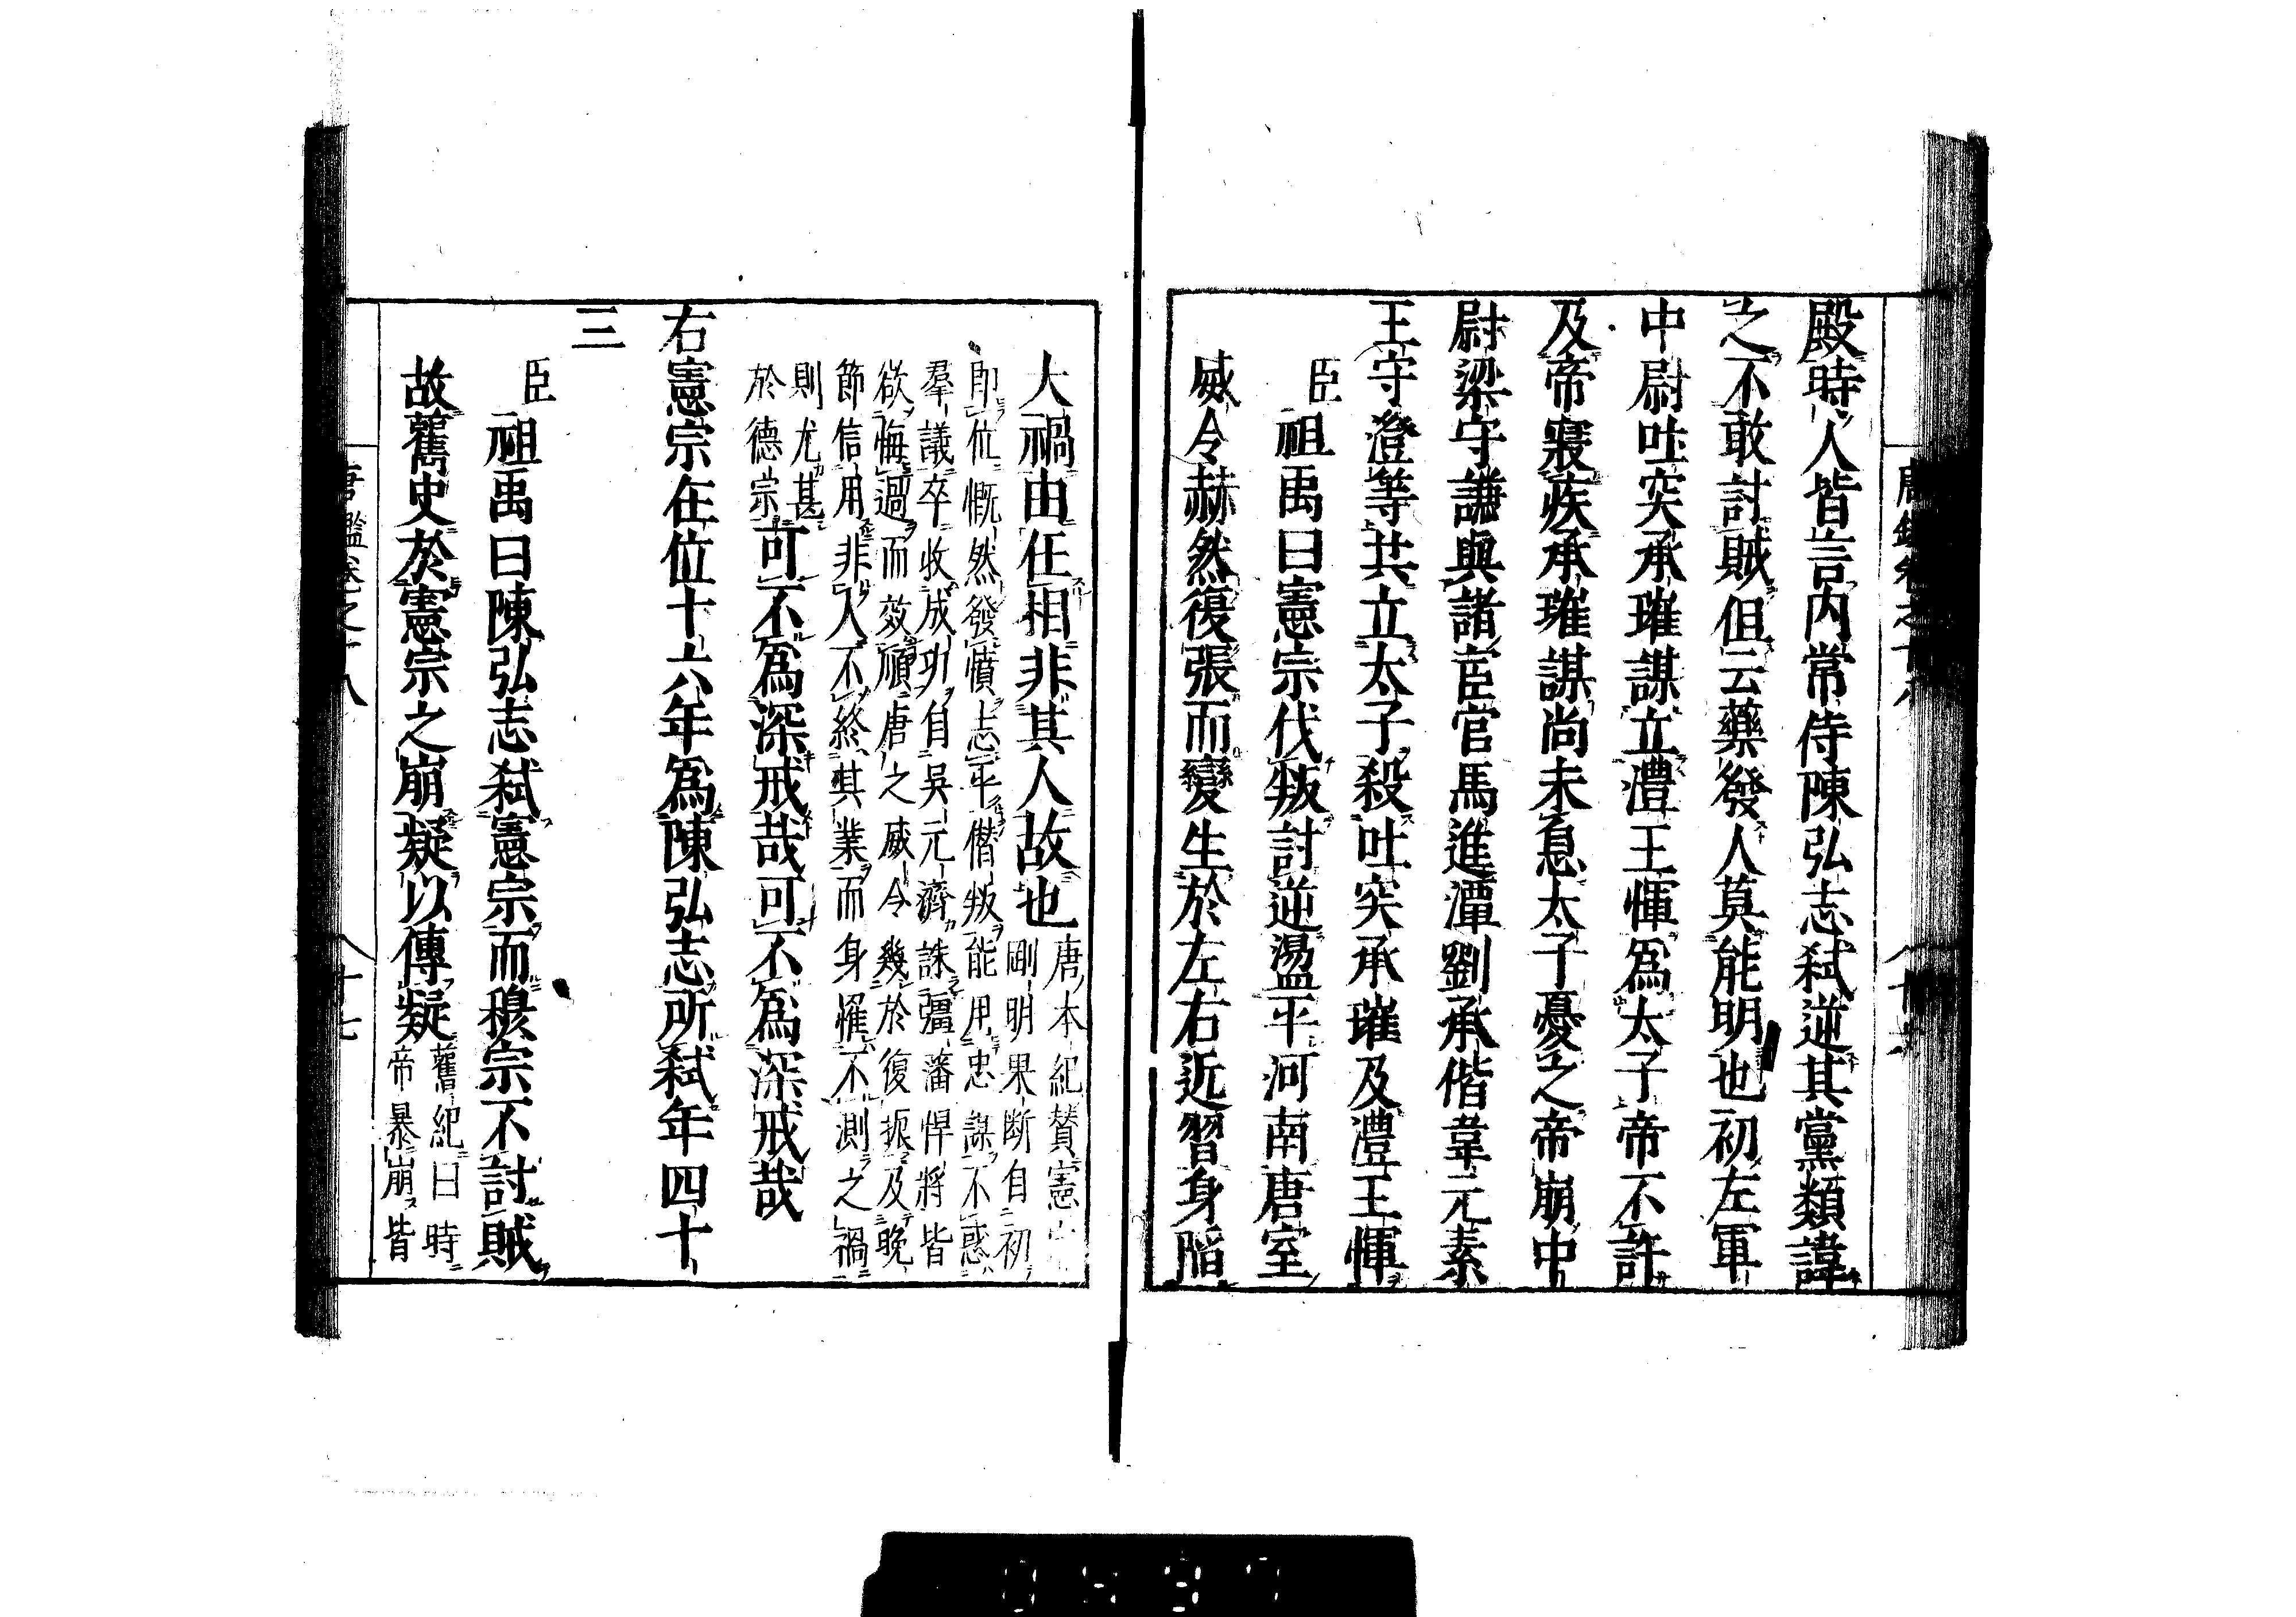 殿時人皆言内常侍陳弘志弑逆其黨類諱
之不敢討賊但云藥發人莫能明也初左軍
中尉吐突承璀謀立澧王惲爲太子帝不許
及帝寢疾承璀謀尚未息太子憂之帝崩中
尉梁守謙與諸宦官馬進潭劉承偕韋元素
王守澄等共立太子殺吐突承璀及澧王惲
臣祖禹曰憲宗伐叛討逆盪平河南唐室
威令赫然復張而變生於左右近習身陷
大禍由任相非其人故也唐本紀賛憲
剛明果断自初
即位慨然發憤志平僭叛能用忠謀不惑
羣議卒收成功自吳元濟誅彊藩悍將皆
欲悔過而效順唐之威令幾於復振及晩
節信用非人不終其業而身罹不測之禍
則尤甚
於德宗可不爲深戒哉可不爲深戒哉
右憲宗在位十六年爲陳弘志所弑年四十
三
臣祖禹曰陳弘志弑憲宗而穆宗不討賊
故舊史於憲宗之崩疑以傳疑舊紀曰時
帝暴崩皆
唐鑑卷之十八
十七